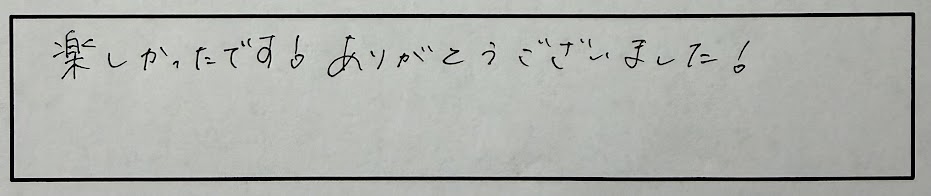 楽しかったです! ありがとうございました!